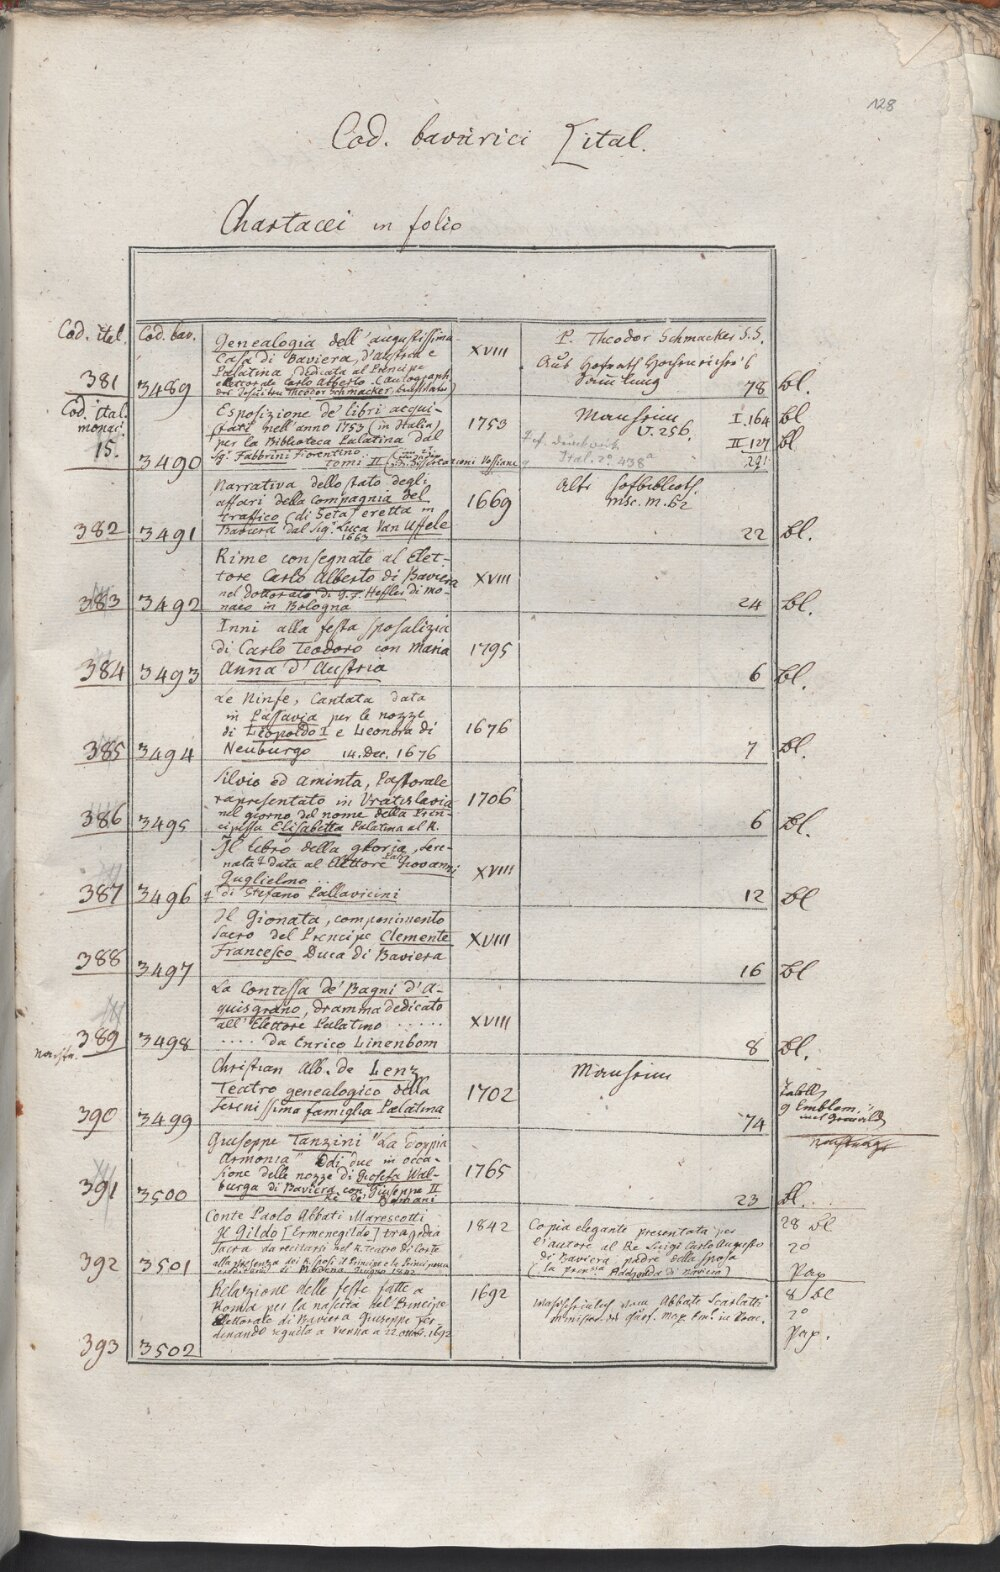 128
Cod. bavarici Ital.
Chartacei in folio
Cod. ital.
381
Cod. bav.
3489
Genealogia dell' augustissima
Casa di Baviera, d'Austria e
Palatina, dedicata al Principe
elettorale Carlo Alberto. (Autograph
Theodor Schmacker
XVIII
P. Theodor Schmacker S.S.
Aus Hofrath
78 bl.
Cod. ital.
monac.
15.
3490
Esposizione de' libri acqui-
stati nell' anno 1753 (in Italia)
per la Biblioteca Palatina dal
Sgr. Fabbrini Fiorentino
tomi II
1753
Manheim
V. 256.
Ital. 2º 438a
I. 164 bl
II 127 bl.
291
382
3491
Narrativa dello stato degli
affari della Compagnia del
traffico (di Seta) eretta in
Baviera dal Sigr. Luca Van Uffele
1663
1669
Alte Hofbiblioth.
msc. m. 62
22 bl.
383
3492
Rime consegnate al Elet-
tore Carlo Alberto di Baviera
nel dottorato di di Mo-
naco in Bologna
XVIII
24 bl.
384
3493
Inni alla festa sposalizia
di Carlo Teodoro con Maria
Anna d'Austria
1795
6 bl.
385
3494
Le Ninfe, Cantata data
in Passavia per le nozze
di Leopoldo I e Leonora di
Neuburgo 14. Dec. 1676
1676
7 bl.
386
3495
Silvio ed Aminta, Pastorale
rapresentato in Vratislavia
nel giorno del nome della Pren-
cipessa Elisabetta Palatina al R.
1706
6 bl.
387
3496
Il Libro della gloria, Sere-
nata data al Elettore Pal. Giovanni
Guglielmo ..
di Stefano Pallavicini
XVIII
12 bl
388
3497
Il Gionata, componimento
sacro del Prencipe Clemente
Francesco Duca di Baviera
XVIII
16 bl
389
3498
La Contessa de' Bagni d'A-
quisgrano, dramma dedicato
all' Elettore Palatino ......
.... da Enrico Linenbom
XVIII
8 bl.
390
3499
Christian Alb. de Lenz
Teatro genealogico della
Serenissima famiglia Palatina
1702
Manheim
74
9 Emblem.
391
3500
Giuseppe Tanzini "La doppia
Armonia" Odi due in occa-
sione delle nozze di Giosefa Wal-
burga di Baviera con Giuseppe II
Re de' Romani
1765
23 bl.
392
3501
Conte Paolo Abbati Marescotti
Il Gildo [Ermenegildo] tragedia
sacra da recitarsi nel R. teatro di Corte
alla presenza dei R. Sposi il Principe e la Principessa
di Modena Giugno 1842
1842
Copia elegante presentata per
l'autore al Re Luigi Carlo Augusto
di Baviera, padre della sposa
(la Adelgonda di Baviera)
28 bl
2º
Pap
393
3502
Relazione delle feste fatte a
Roma per la nascita del Principe
Elettorale di Baviera Giuseppe Fer-
dinando seguita a Vienna a 1692
1692
vom Abbate Scarlatti
8 bl
2º
Pap.